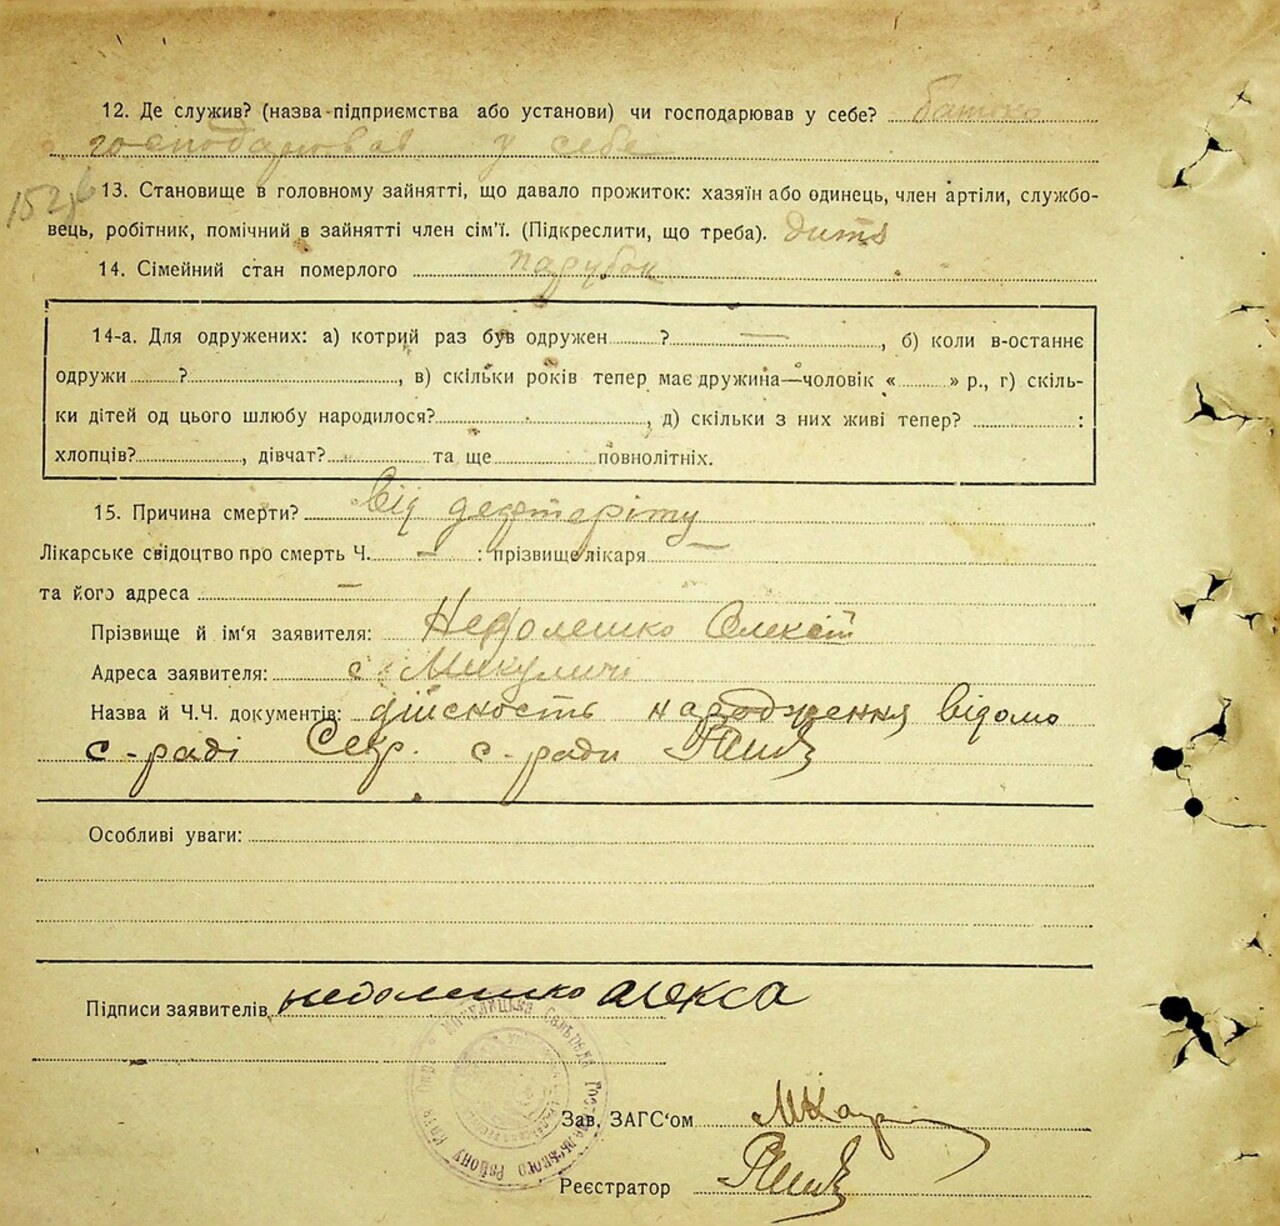 12. Де служив? (назва підприємства або установи) чи господарював у себе? батько
господарював у себе
13. Становище в головному зайнятті, що давало прожиток: хазяїн або одинець, член артіли, службо-
вець, робітник, помічний в зайнятті член сім'ї. (Підкреслити, що треба). дитя
14. Сімейний стан померлого парубок
14-а. Для одружених: а) котрий раз був одружен ? —, б) коли в-останнє
одружи ? , в) скільки років тепер має дружина—чоловік « » р., г) скіль-
ки дітей од цього шлюбу народилося? , д) скільки з них живі тепер? :
хлопців? , дівчат? та ще повнолітніх.
15. Причина смерти? Від дефтеріту
Лікарське свідоцтво про смерть Ч. — : прізвище лікаря —
та його адреса —
Прізвище й ім'я заявителя: Недолешко Олексій
Адреса заявителя: с Микуличі
Назва й Ч.Ч. документів: дійсность народження відомо
с-раді Секр. с-ради
Особливі уваги:
Підписи заявителів недолешко алекса
Зав. ЗАГС'ом
Реєстратор